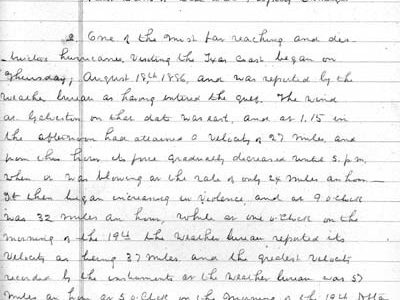 2. One of the most far reaching and des-
tructive hurricanes visiting the Texas coast began on
Thursday, August 18th 1886, and was reported by the
weather bureau as having entered the gulf. The wind
at Galveston on that date was east, and at 1.15 in
the afternoon had attained a velocity of 27 miles, and
from this hour its force gradually decreased until 5. p.m.
when it was blowing at the rate of only 24 miles an hour
It then began increasing in violence, and at 9 o'clock
was 32 miles an hour, while at one o'clock on the
morning of the 19th the weather bureau reported its
velocity as being 37 miles and the greatest velocity
recorded by the instruments at the weather bureau was 57
miles an hour at 5 o'clock on the morning of the 19th